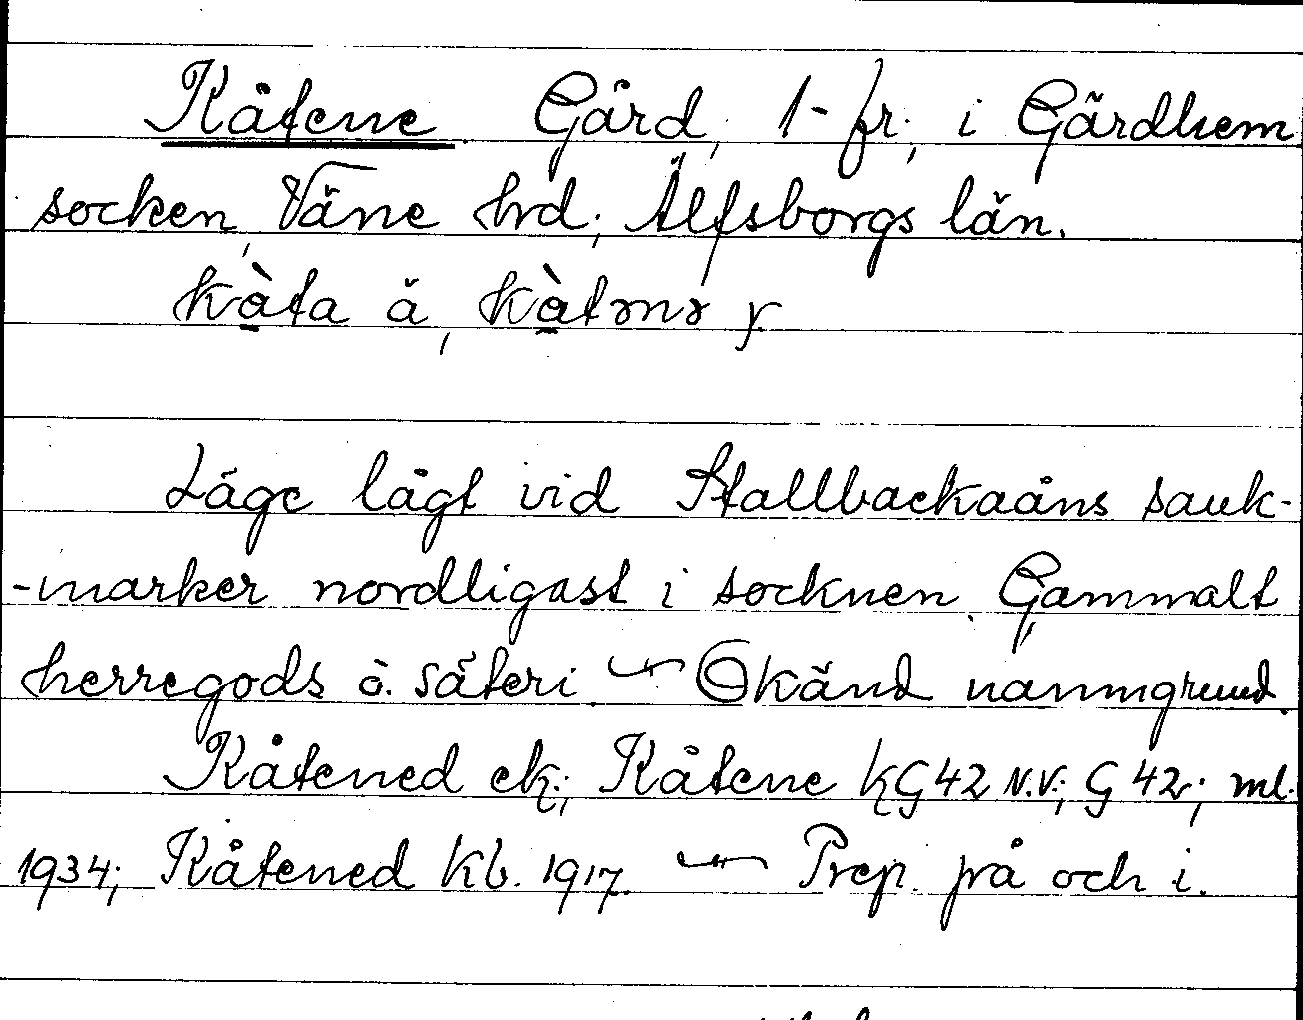 Kåtene Gård, 1-fr., i Gärdhem
socken, Väne hrd, Älfsborgs län.
kàta ä, kàtənə y
Läge lågt vid Stallbackaåns sank-
-marker nordligast i socknen. Gammalt
herregods o. säteri. ~ Okänd namngrund.
Kåtened ek.; Kåtene kG42 N.V.; G 42; ml.
1934; Kåtened kb. 1917. ~ Prep. på och i.